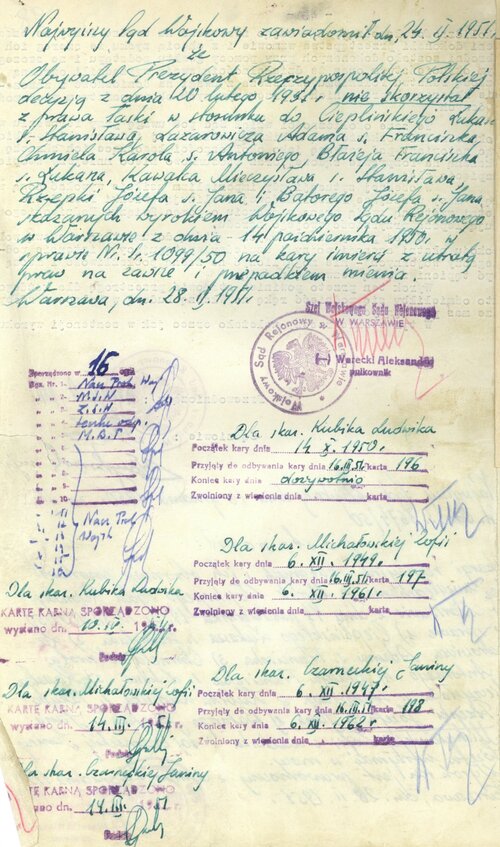 Najwyższy Sąd Wojskowy zawiadomił dn. 24. II. 1951.
że
Obywatel Prezydent Rzeczypospolitej Polskiej
decyzją z dnia 20 lutego 1951 r nie skorzystał
z prawa łaski w stosunku do Cieplińskiego Łukasza
s. Stanisława, Lazarowicza Adama s. Franciszka,
Chmiela Karola s. Antoniego, Błażeja Franciszka
s. Łukasza, Kawalca Mieczysława s. Stanisława,
Rzepki Józefa s. Jana i Batorego Józefa s. Jana,
skazanych wyrokiem Wojskowego Sądu Rejonowego
w Warszawie z dnia 14 października 1950. w
sprawie Nr. Sr. 1099/50 na kary śmierci z utratą
praw na zawsze i przepadkiem mienia.
Warszawa, dn. 28. II. 1951.
Szef Wojskowego Sądu Rejonowego
W WARSZAWIE
Warecki Aleksander
pułkownik
Wojskowy Sąd Rejonowy w Warszawie
Sporządzono w 16 egz.
Egz. Nr. 1.
2
3
4
5
6
7
8
9
10
Dla skaz. Kubika Ludwika
Początek kary dnia 14 X. 1950.
Przyjęty do odbywania kary dnia 16.III.51 karta 196
Koniec kary dnia dożywotnio
Zwolniony z więzienia dnia karta
Dla skaz. Michałowskiej Zofii
Początek kary dnia 6. XII. 1949.
Przyjęty do odbywania kary dnia 16.III.51 karta 197
Koniec kary dnia 6. XII. 1961.
Zwolniony z więzienia dnia karta
Dla skaz. Kubika Ludwika
KARTĘ KARNĄ SPORZĄDZONO
wysłano dn.
Podpis
Dla skaz. Czarneckiej Janiny
Początek kary dnia 6. XII. 1947.
Przyjęty do odbywania kary dnia 16.III.51 karta 198
Koniec kary dnia 6. XII. 1962 r.
Zwolniony z więzienia dnia karta
Dla skaz. Michałowskiej Zofii
KARTĘ KARNĄ SPORZĄDZONO
wysłano dn. 14. III. 1951 r.
Podpis
Dla skaz. Czarneckiej Janiny
KARTĘ KARNĄ SPORZĄDZONO
wysłano dn. 14. III. 1951.
Podpis